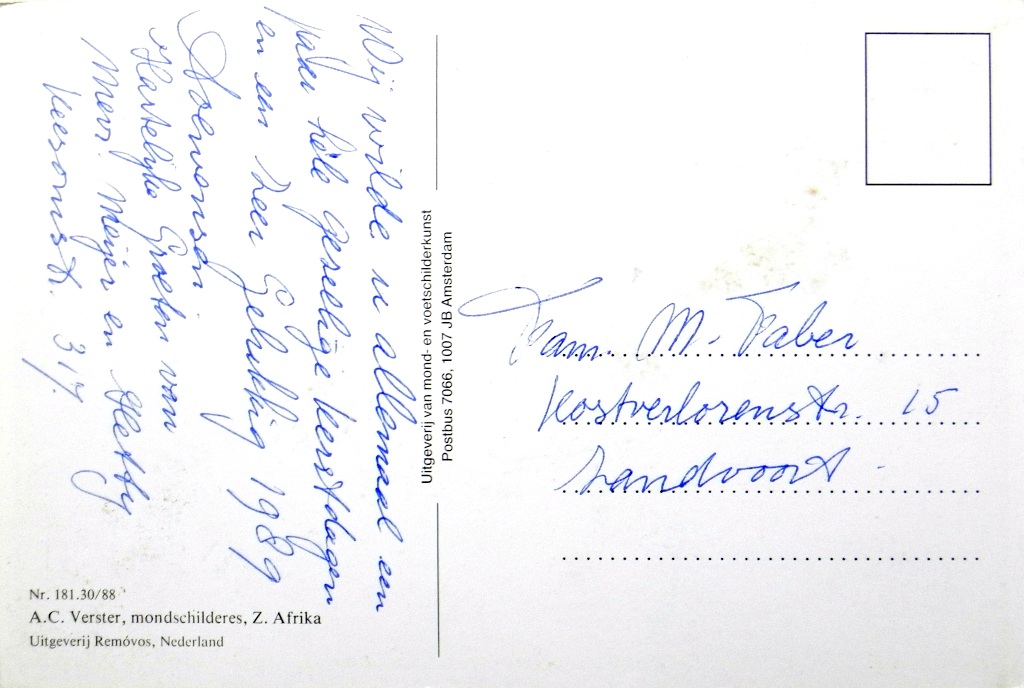 Wij wilde u allemaal een
paar hele gezellige kerstdagen
en een zeer Gelukkig 1989
Hartelijke Groeten van
Mevr Meijer en Hetty
Keesomstr. 317.
Uitgeverij van mond- en voetschilderkunst
Postbus 7066, 1007 JB Amsterdam
Fam. M. Faber
Kostverlorenstr. 15
Zandvoort -
Nr. 181.30/88
A.C. Verster, mondschilderes, Z. Afrika
Uitgeverij Remóvos, Nederland